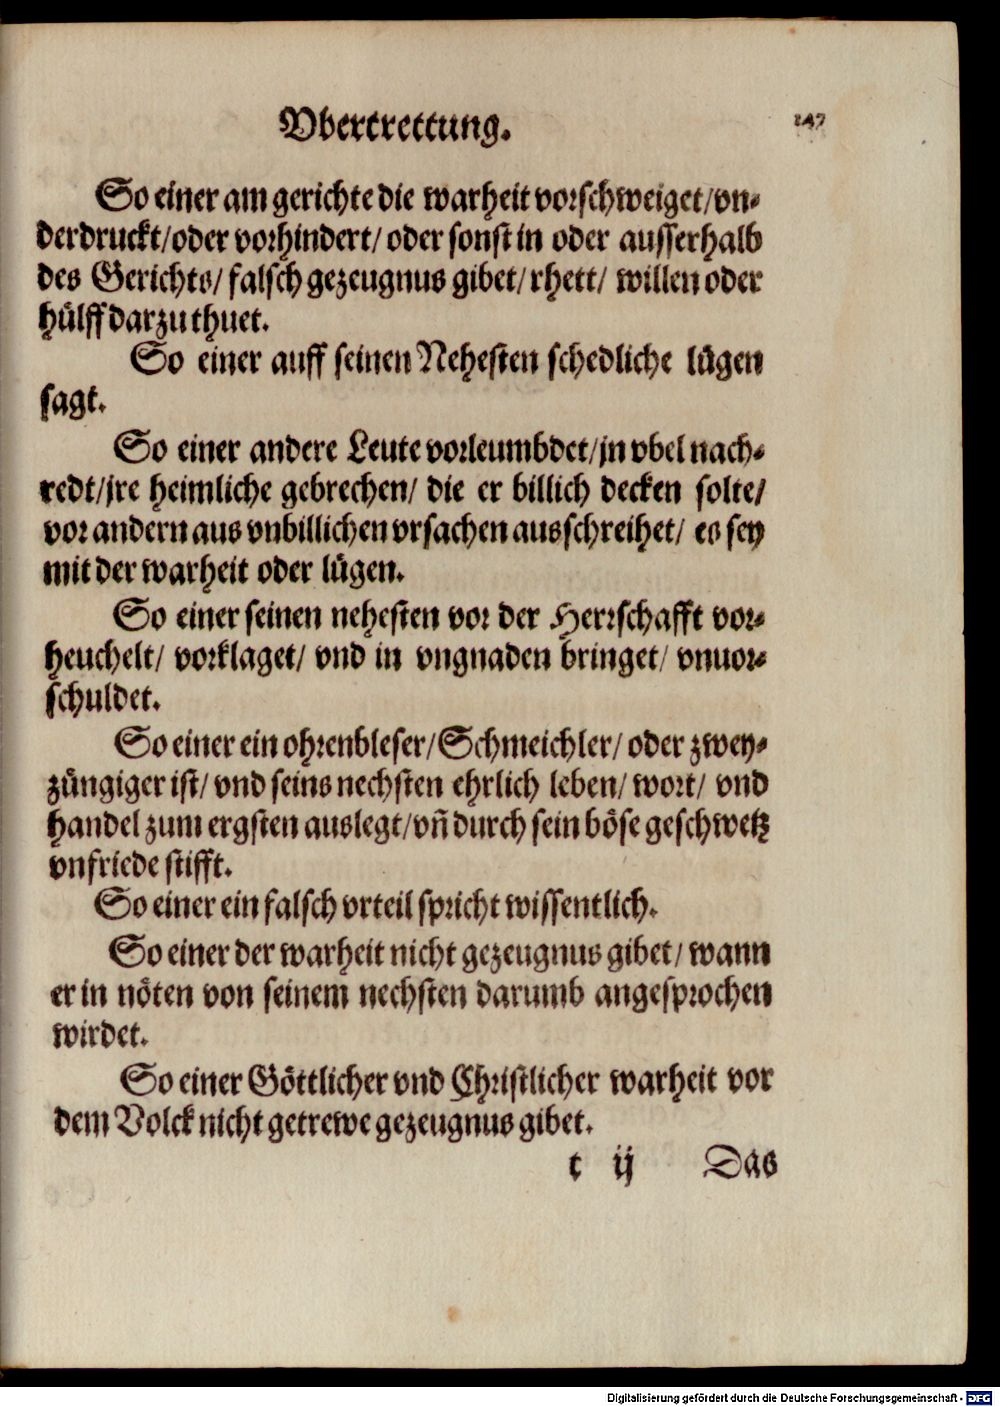 Vbertrettung.
147
So einer am gerichte die warheit vorschweiget/vn-
derdruckt/oder vorhindert/oder sonst in oder ausserhalb
des Gerichts/falsch gezeugnus gibet/rhett/ willen oder
hülff darzu thuet.
So einer auff seinen Nehesten schedliche lügen
sagt.
So einer andere Leute vorleumbdet/jn vbel nach-
redt/jre heimliche gebrechen/ die er billich decken solte/
vor andern aus vnbillichen vrsachen ausschreihet/ es sey
mit der warheit oder lügen.
So einer seinen nehesten vor der Herrschafft vor-
heuchelt/ vorklaget/ vnd in vngnaden bringet/ vnuor-
schuldet.
So einer ein ohrenbleser/Schmeichler/ oder zwey-
züngiger ist/ vnd seins nechsten ehrlich leben/ wort/ vnd
handel zum ergsten auslegt/vñ durch sein böse geschwetz
vnfriede stifft.
So einer ein falsch vrteil spricht wissentlich.
So einer der warheit nicht gezeugnus gibet/ wann
er in nöten von seinem nechsten darumb angesprochen
wirdet.
So einer Göttlicher vnd Christlicher warheit vor
dem Volck nicht getrewe gezeugnus gibet.
t ij Das
Digitalisierung gefördert durch die Deutsche Forschungsgemeinschaft - DFG